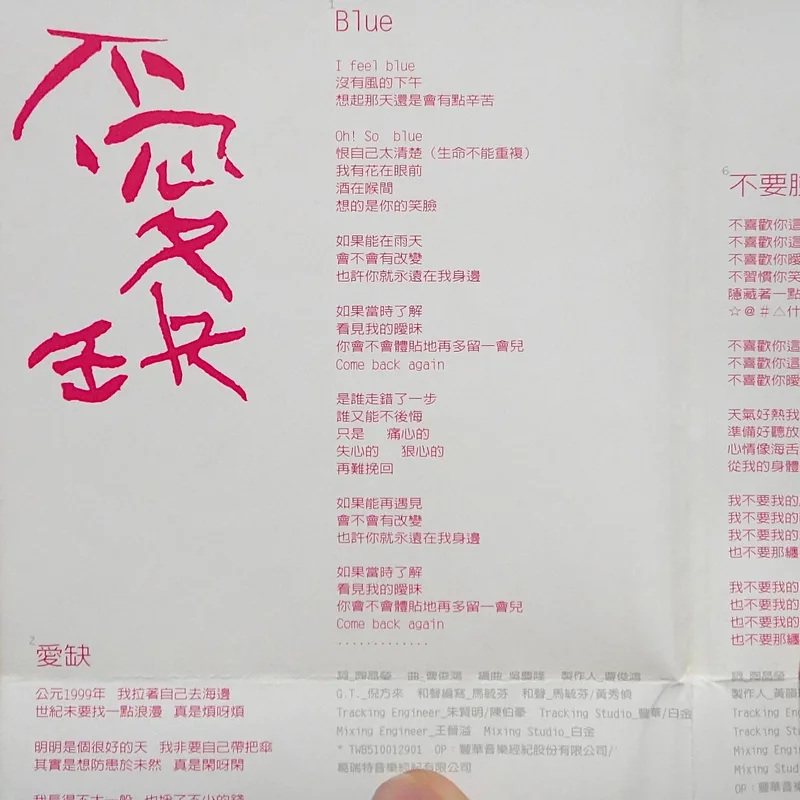 愛
缺
1
Blue
I feel blue
沒有風的下午
想起那天還是會有點辛苦
Oh! So blue
恨自己太清楚（生命不能重複）
我有花在眼前
酒在喉間
想的是你的笑臉
如果能在雨天
會不會有改變
也許你就永遠在我身邊
如果當時了解
看見我的曖昧
你會不會體貼地再多留一會兒
Come back again
是誰走錯了一步
誰又能不後悔
只是 痛心的
失心的 狠心的
再難挽回
如果能再遇見
會不會有改變
也許你就永遠在我身邊
如果當時了解
看見我的曖昧
你會不會體貼地再多留一會兒
Come back again
.............
G.T._倪方來 和聲編寫_馬毓芬 和聲_馬毓芬/黃秀偵
Tracking Engineer_朱賢明/陳伯豪 Tracking Studio_豐華/白金
Mixing Engineer_王晉溢 Mixing Studio_白金
* TWB510012901 OP：豐華音樂經紀股份有限公司/
有限公司
2
愛缺
公元1999年 我拉著自己去海邊
世紀末要找一點浪漫 真是煩呀煩
明明是個很好的天 我非要自己帶把傘
其實是想防患於未然 真是閑呀閑
6
不要
不喜歡你這
不喜歡你這
不喜歡你曖
不習慣你笑
隱藏著一點
☆@＃△什
不喜歡你這
不喜歡你這
不喜歡你曖
天氣好熱我
準備好聽放
心情像海舌
從我的身體
我不要我的
我不要我的
我不要我的
也不要那纏
我不要我的
也不要我的
也不要我的
也不要那纏
製作人_黃
Tracking Eng
Tracking Stu
Mixing Engin
Mixing Stud
OP：豐華音